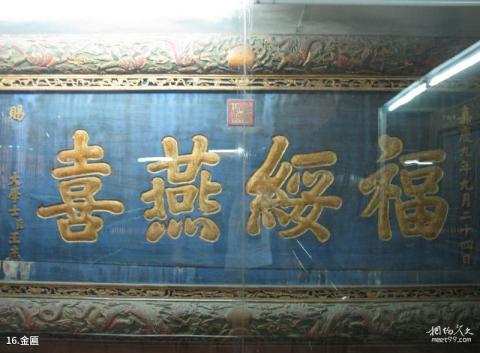 嘉慶九年九月二十四日
福綏燕喜
賜
大學士臣王杰
16.金匾
相约久久
meet99.com